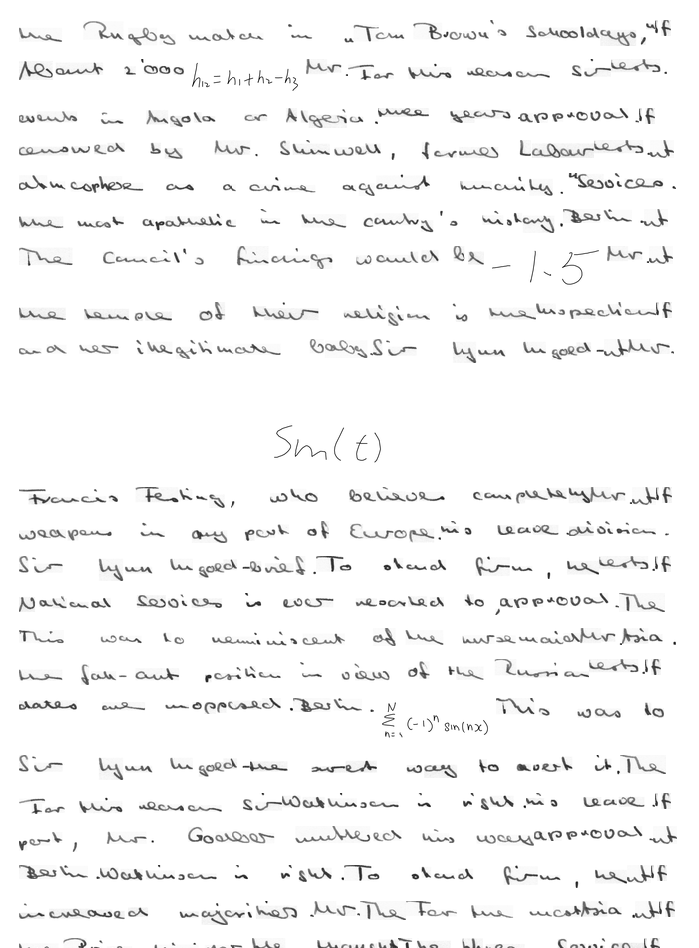 the Rugby match in "Tom Brown's Schooldays," If
About 2'000 h_{12} = h_1 + h_2 - h_3 Mr. For this reason Sir tests.
events in Angola or Algeria. three years approval. If
censored by Mr. Shinwell, former Labour tests. ut
atmosphere as a crime against humanity. "Services.
the most apathetic in the country's history. Berlin. ut
The Council's findings would be -1.5 Mr. ut
the temple of their religion is the Inspection If
and her illegitimate baby. Sir Lynn Ungoed-ut Mr.
Sm(t)
Francis Festing, who believes completely Mr. ut If
weapons in any part of Europe. his leave division.
Sir Lynn Ungoed-brief. To stand firm, he tests. If
National Services is ever resorted to, approval. The
This was to reminiscent of the nursemaid Mr. Asia.
the fall-out position in view of the Russian tests. If
dates are unopposed. Berlin. \sum_{n=1}^{N} (-1)^n sin(nx) This was to
Sir Lynn Ungoed-the surest way to avert it. The
For this reason Sir Watkinson is right. his leave. If
port, Mr. Goodber muttered his way approval. ut
Berlin. Watkinson is right. To stand firm, he ut If
increased majorities. Mr. The For the most Asia. ut If
the Prime Minister the thought The three Service. If